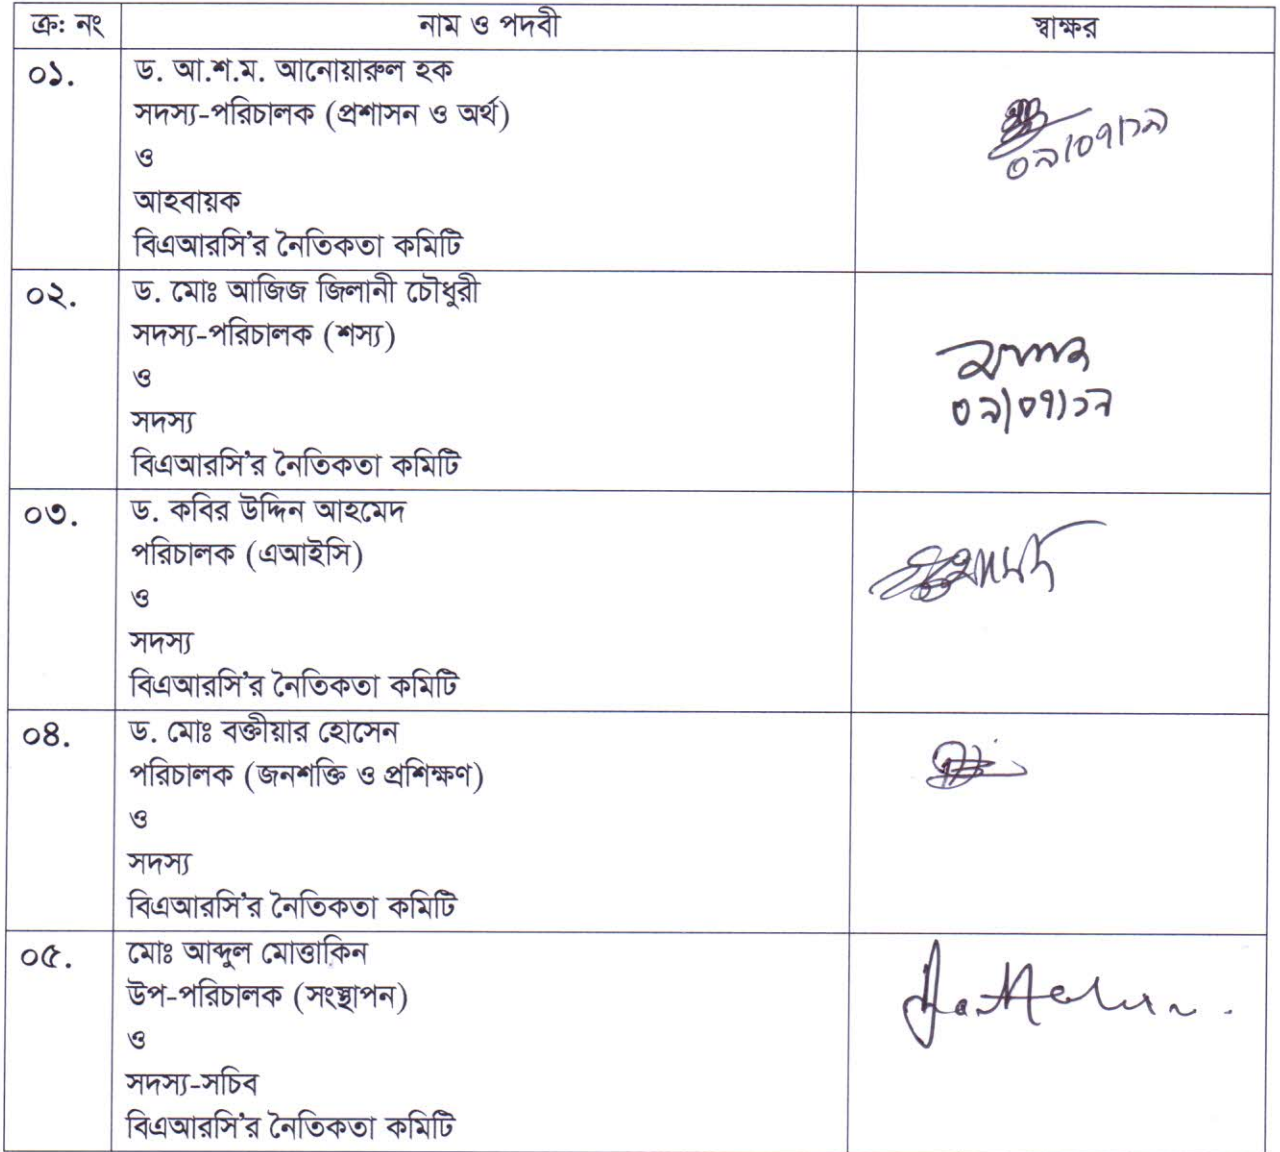 ক্র: নং নাম ও পদবী স্বাক্ষর
০১. ড. আ.শ.ম. আনোয়ারুল হক
সদস্য-পরিচালক (প্রশাসন ও অর্থ)
ও
আহবায়ক
বিএআরসি'র নৈতিকতা কমিটি
০৯/০৭/১৯
০২. ড. মোঃ আজিজ জিলানী চৌধুরী
সদস্য-পরিচালক (শস্য)
ও
সদস্য
বিএআরসি'র নৈতিকতা কমিটি
০৯/০৭/১৯
০৩. ড. কবির উদ্দিন আহমেদ
পরিচালক (এআইসি)
ও
সদস্য
বিএআরসি'র নৈতিকতা কমিটি
০৪. ড. মোঃ বক্তীয়ার হোসেন
পরিচালক (জনশক্তি ও প্রশিক্ষণ)
ও
সদস্য
বিএআরসি'র নৈতিকতা কমিটি
০৫. মোঃ আব্দুল মোত্তাকিন
উপ-পরিচালক (সংস্থাপন)
ও
সদস্য-সচিব
বিএআরসি'র নৈতিকতা কমিটি